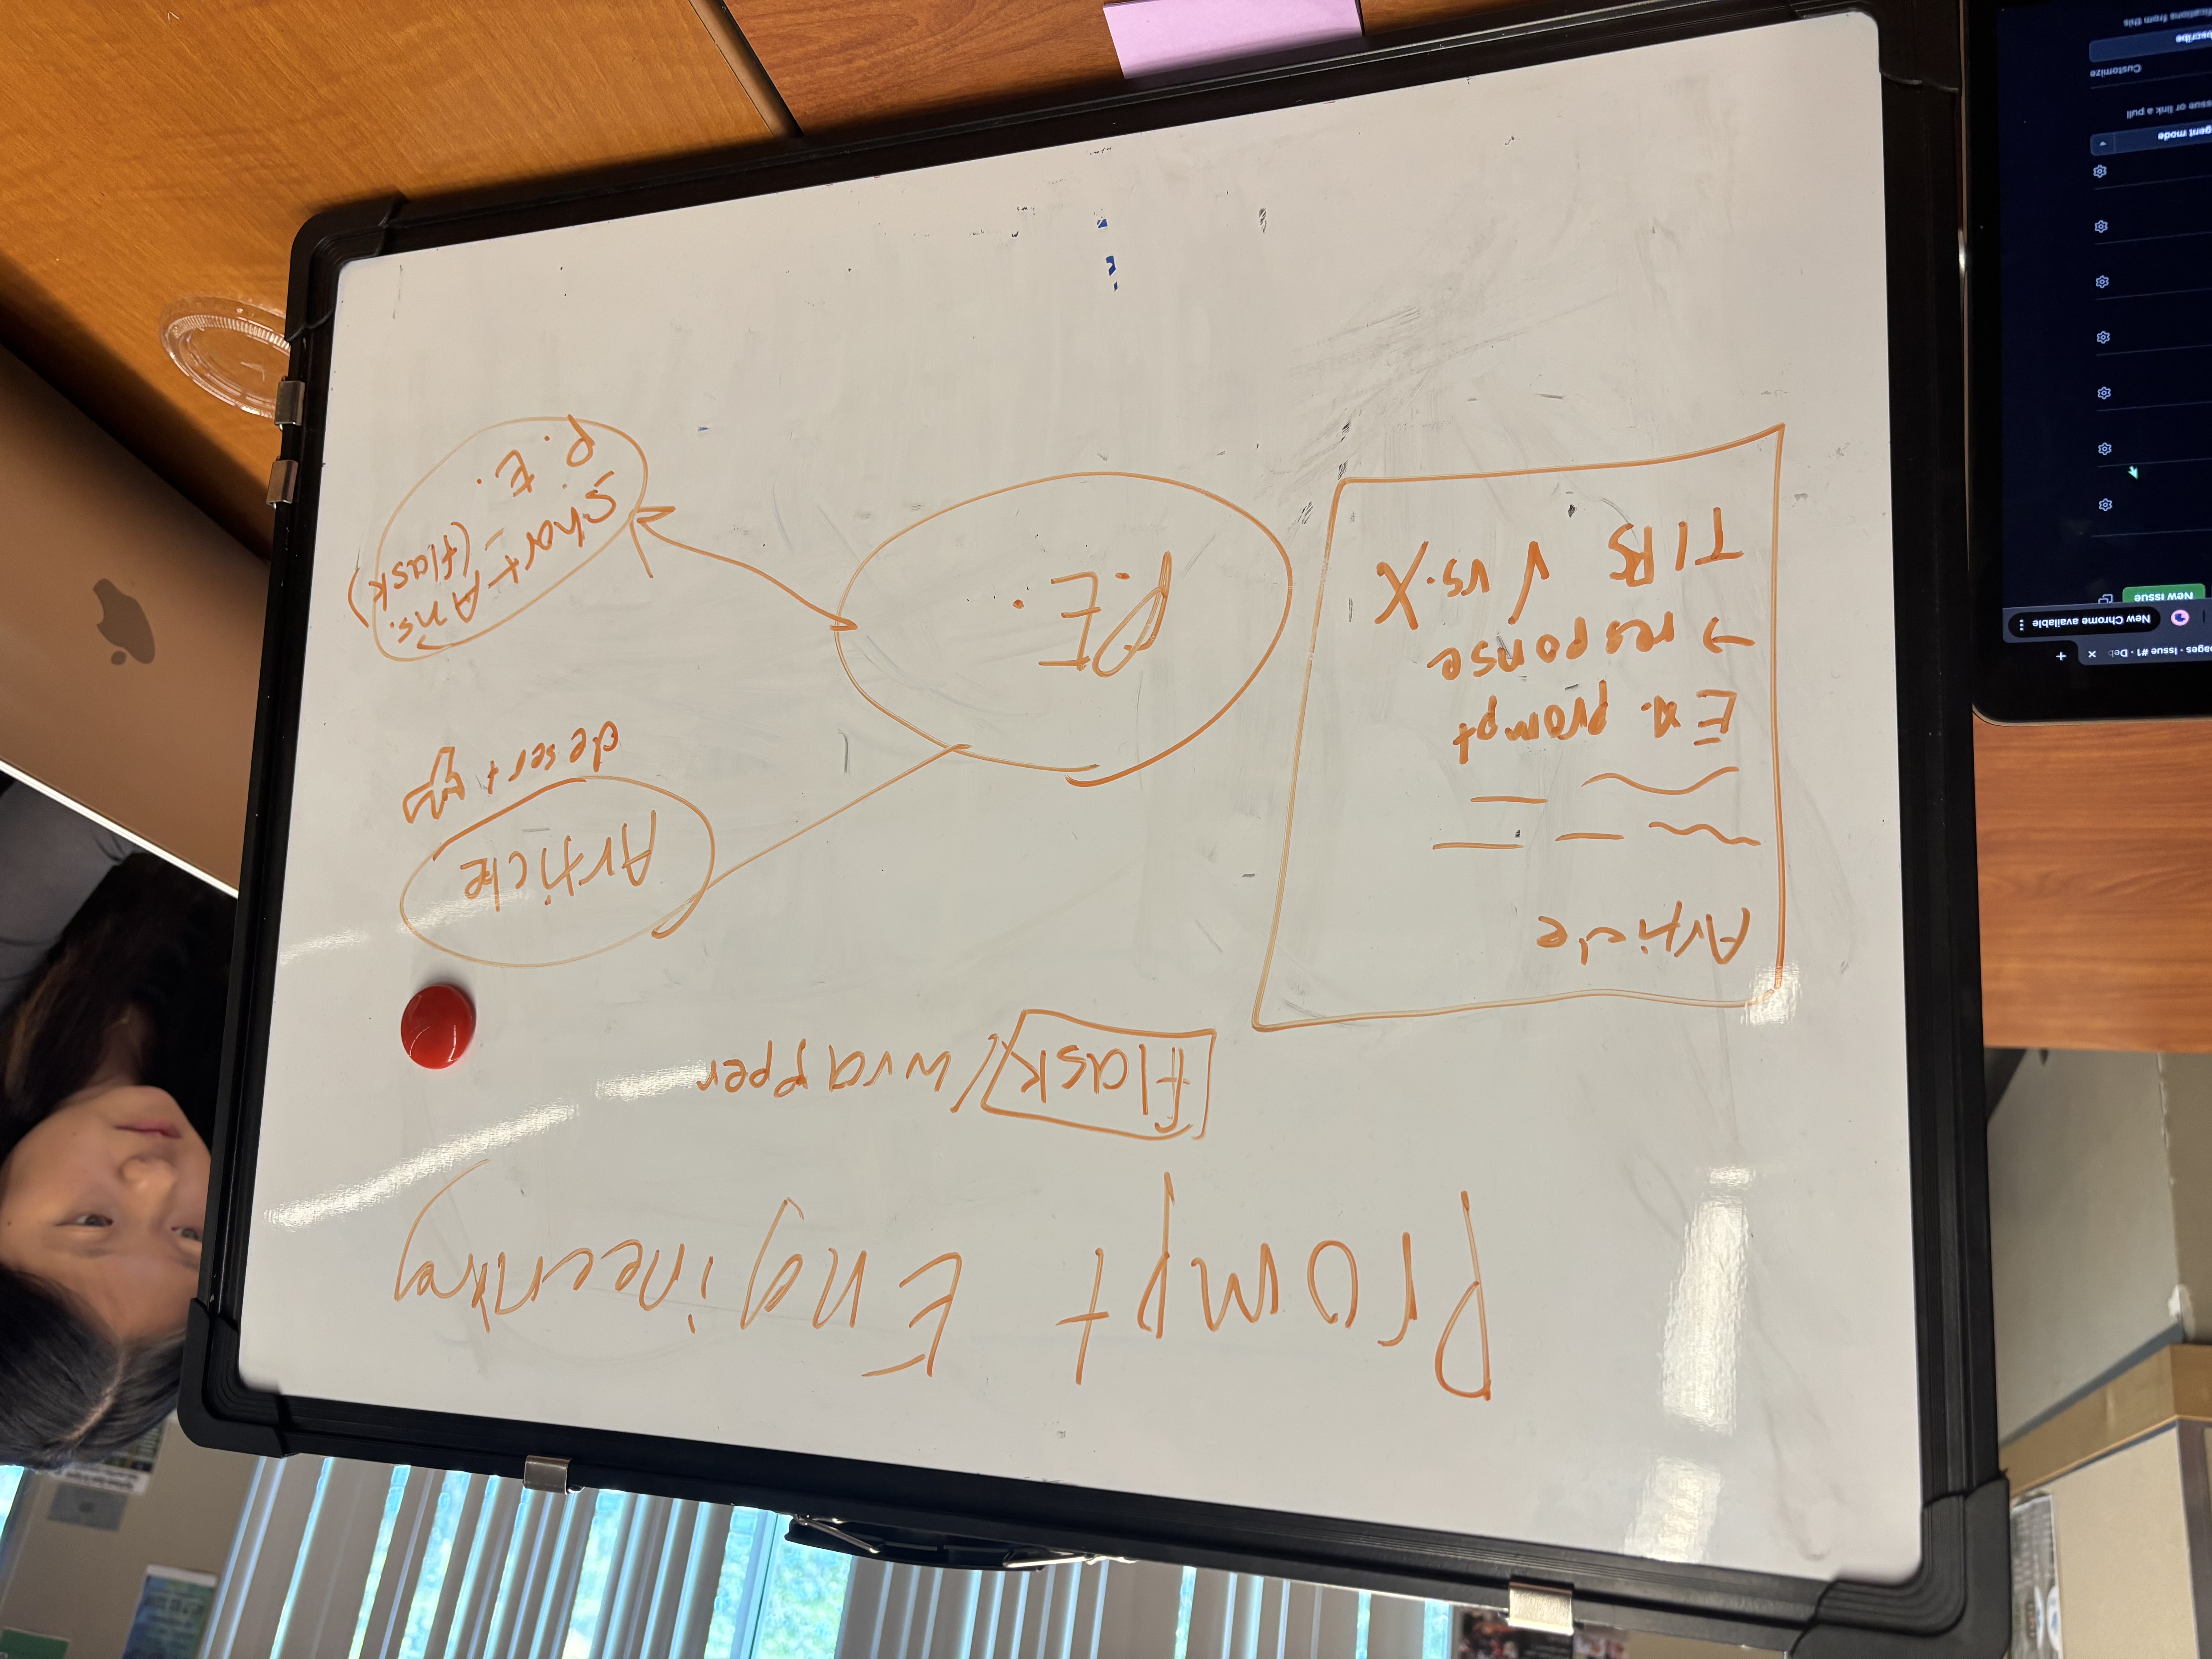 Prompt Engineering
flask/wrapper
Article
Ex. prompt
→ response
TIPS √ vs. X
P.E.
Article
desert
Short Ans.
(flask)
P.E.
pages · Issue #1 · Deb
New Chrome available
New issue
gent mode
ssue or link a pull
Customize
bscribe
ifications from this